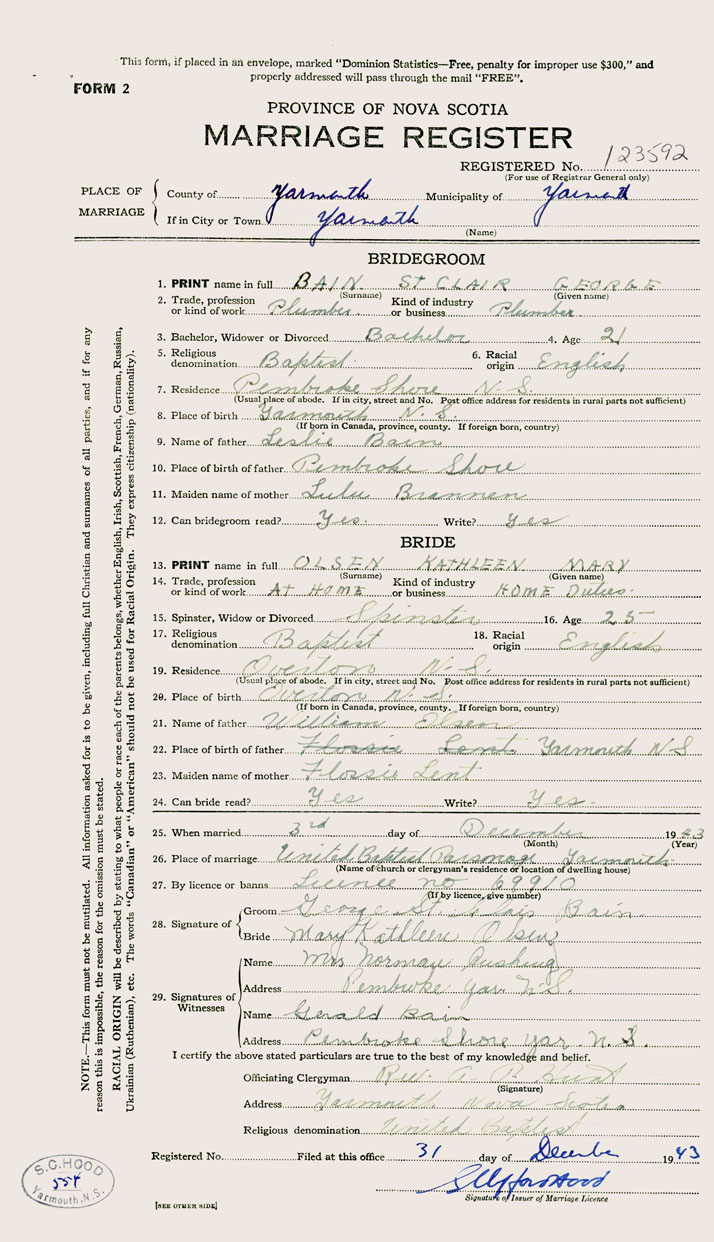 This form, if placed in an envelope, marked "Dominion Statistics—Free, penalty for improper use $300," and
properly addressed will pass through the mail "FREE".
FORM 2
PROVINCE OF NOVA SCOTIA
MARRIAGE REGISTER
REGISTERED No. 123592
(For use of Registrar General only)
PLACE OF MARRIAGE
County of Yarmouth Municipality of Yarmouth
If in City or Town Yarmouth
(Name)
BRIDEGROOM
1. PRINT name in full BAIN ST CLAIR GEORGE
(Surname) (Given name)
2. Trade, profession or kind of work Plumber Kind of industry or business Plumber
3. Bachelor, Widower or Divorced Bachelor 4. Age 21
5. Religious denomination Baptist 6. Racial origin English
7. Residence Pembroke Shore N.S.
(Usual place of abode. If in city, street and No. Post office address for residents in rural parts not sufficient)
8. Place of birth Yarmouth N.S.
(If born in Canada, province, county. If foreign born, country)
9. Name of father Leslie Bain
10. Place of birth of father Pembroke Shore
11. Maiden name of mother Lulu Brannen
12. Can bridegroom read? Yes. Write? Yes
BRIDE
13. PRINT name in full OLSEN KATHLEEN MARY
(Surname) (Given name)
14. Trade, profession or kind of work AT HOME Kind of industry or business HOME Duties.
15. Spinster, Widow or Divorced Spinster 16. Age 25
17. Religious denomination Baptist 18. Racial origin English
19. Residence Overton N.S.
(Usual place of abode. If in city, street and No. Post office address for residents in rural parts not sufficient)
20. Place of birth Overton N.S.
(If born in Canada, province, county. If foreign born, country)
21. Name of father William Olsen
22. Place of birth of father Flossie Lent Yarmouth N S
23. Maiden name of mother Flossie Lent
24. Can bride read? Yes Write? Yes.
25. When married 3rd day of December 1943
(Month) (Year)
26. Place of marriage United Baptist Parsonage Yarmouth
(Name of church or clergyman's residence or location of dwelling house)
27. By licence or banns Licence no 69910
(If by licence, give number)
28. Signature of
Groom George St. Clair Bain
Bride Mary Kathleen Olsen
29. Signatures of Witnesses
Name Mrs Norman Cushing
Address Pembroke Yar. N.S.
Name Gerald Bain
Address Pembroke Shore Yar. N.S.
I certify the above stated particulars are true to the best of my knowledge and belief.
Officiating Clergyman Rev. A.
(Signature)
Address Yarmouth Nova Scotia
Religious denomination United Baptist
Registered No. Filed at this office 31 day of December 1943
Signature of Issuer of Marriage Licence
[SEE OTHER SIDE]
S.C. HOOD
554
Yarmouth, N.S.
NOTE.—This form must not be mutilated. All information asked for is to be given, including full Christian and surnames of all parties, and if for any
reason this is impossible, the reason for the omission must be stated.
RACIAL ORIGIN will be described by stating to what people or race each of the parents belongs, whether English, Irish, Scottish, French, German, Russian,
Ukrainian (Ruthenian), etc. The words "Canadian" or "American" should not be used for Racial Origin. They express citizenship (nationality).